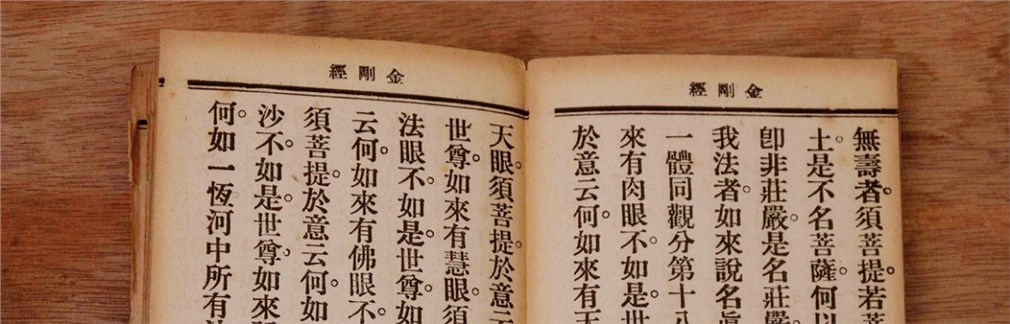 金剛經
無壽者。須菩提。若菩
土。是不名菩薩。何以
卽非莊嚴。是名莊嚴。
我法者。如來說名眞
一體同觀分第十八
來有肉眼不。如是。世
於意云何。如來有天
金剛經
天眼。須菩提。於意云
世尊。如來有慧眼。須
法眼不。如是。世尊。如
云何。如來有佛眼不
須菩提。於意云何。如
沙不。如是。世尊。如來
何。如一恆河中所有